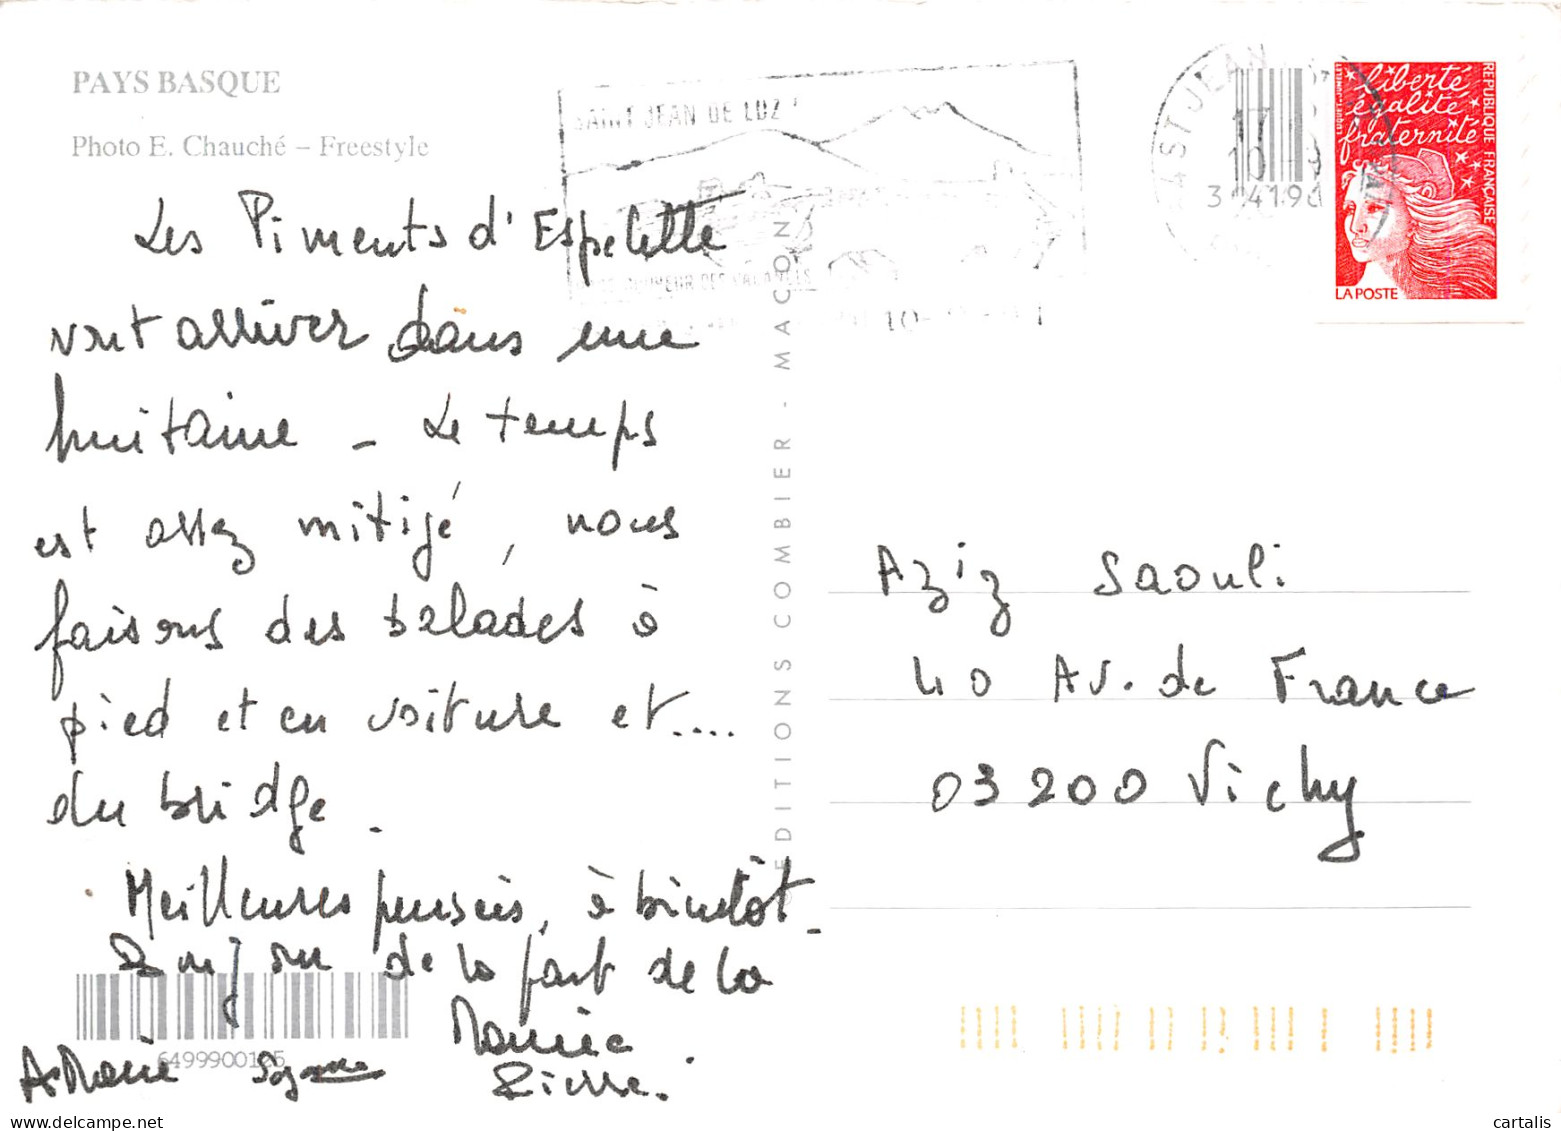 PAYS BASQUE
Photo E. Chauché – Freestyle
Les Piments d'Espelette
vont arriver dans une
huitaine - Le temps
est assez mitigé, nous
faisons des balades à
pied et en voiture et....
du bridge.
Meilleures pensées, à bientôt -
Bonjour de la part de la
Mamie
Pierre.
A-Marie
6499900105
© EDITIONS COMBIER - MACON
SAINT JEAN DE LUZ
ST JEAN
17
10 -9
liberté
égalité
fraternité
RÉPUBLIQUE FRANÇAISE
LA POSTE
Aziz Saouli
40 Av. de France
03200 Vichy
cartalis
www.delcampe.net